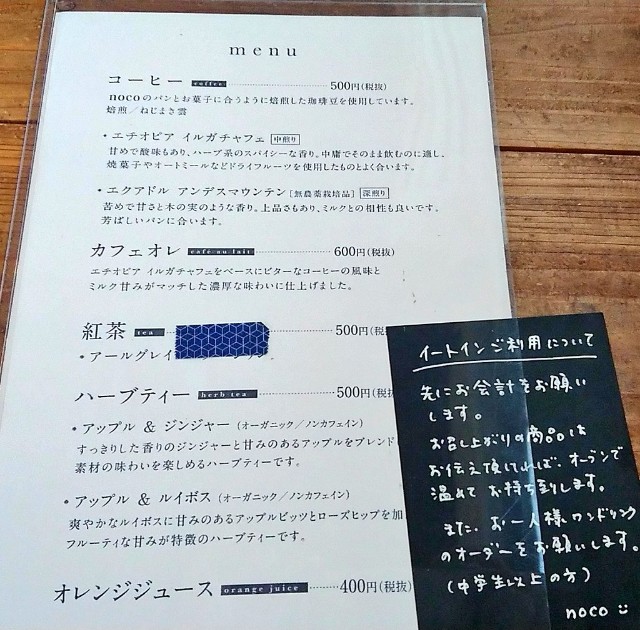 menu
コーヒー coffee 500円(税抜)
nocoのパンとお菓子に合うように焙煎した珈琲豆を使用しています。
焙煎／ねじまき雲
・エチオピア イルガチャフェ 中煎り
甘めで酸味もあり、ハーブ系のスパイシーな香り。中庸でそのまま飲むのに適し、
焼菓子やオートミールなどドライフルーツを使用したものとよく合います。
・エクアドル アンデスマウンテン［無農薬栽培品］ 深煎り
苦めで甘さと木の実のような香り。上品さもあり、ミルクとの相性も良いです。
芳ばしいパンに合います。
カフェオレ café au lait 600円(税抜)
エチオピア イルガチャフェをベースにビターなコーヒーの風味と
ミルク甘みがマッチした濃厚な味わいに仕上げました。
紅茶 tea 500円(税
・アールグレイ
ハーブティー herb tea 500円(税
・アップル ＆ ジンジャー（オーガニック／ノンカフェイン）
すっきりした香りのジンジャーと甘みのあるアップルをブレンド
素材の味わいを楽しめるハーブティーです。
・アップル ＆ ルイボス（オーガニック／ノンカフェイン）
爽やかなルイボスに甘みのあるアップルビッツとローズヒップを加
フルーティな甘みが特徴のハーブティーです。
オレンジジュース orange juice 400円(税抜)
イートインご利用について
先にお会計をお願い
します。
お召し上がりの商品は
お伝え頂ければ、オーブンで
温めてお持ち致します。
また、お一人様ワンドリンク
のオーダーをお願いします。
(中学生以上の方)
noco